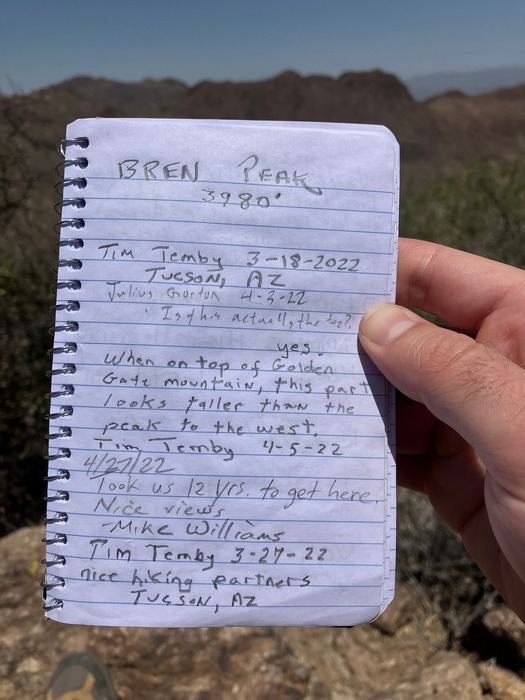 BREN PEAK
3980'
Tim Temby 3-18-2022
TUCSON, AZ
Julius Gorton 4-3-22
Is this actually the top?
yes.
When on top of Golden
Gate mountain, this part
looks taller than the
peak to the west.
Tim Temby 4-5-22
4/27/22
Took us 12 yrs. to get here.
Nice views
-Mike Williams
Tim Temby 3-27-22
nice hiking partners
TUCSON, AZ